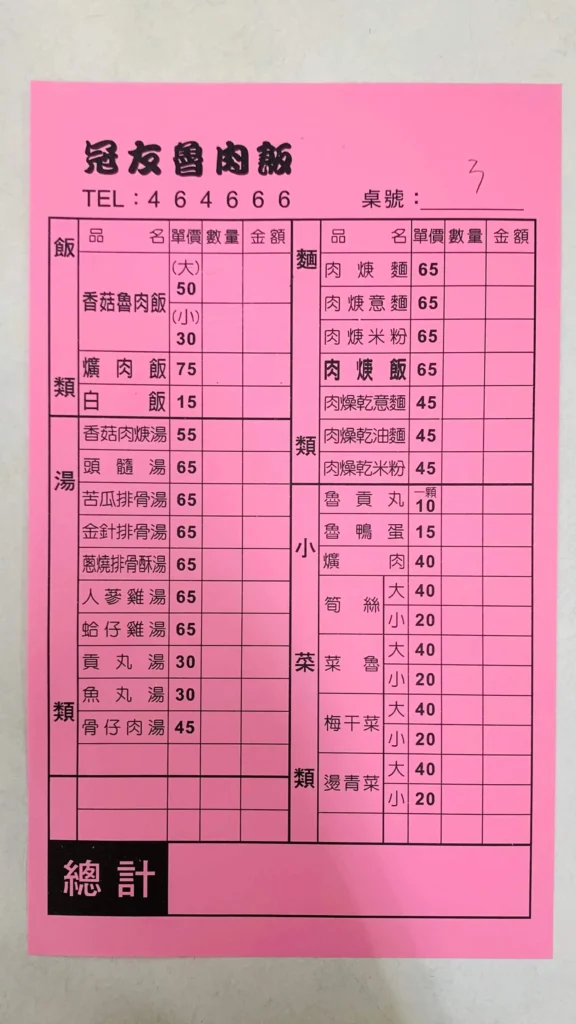 冠友魯肉飯
TEL：4 6 4 6 6 6
桌號：3
飯類
品名 單價 數量 金額
香菇魯肉飯 (大) 50
(小) 30
爌肉飯 75
白飯 15
湯類
香菇肉焿湯 55
頭髓湯 65
苦瓜排骨湯 65
金針排骨湯 65
蔥燒排骨酥湯 65
人蔘雞湯 65
蛤仔雞湯 65
貢丸湯 30
魚丸湯 30
骨仔肉湯 45
麵類
品名 單價 數量 金額
肉焿麵 65
肉焿意麵 65
肉焿米粉 65
肉焿飯 65
肉燥乾意麵 45
肉燥乾油麵 45
肉燥乾米粉 45
小菜類
魯貢丸 一顆 10
魯鴨蛋 15
爌肉 40
筍絲 大 40
小 20
菜魯 大 40
小 20
梅干菜 大 40
小 20
燙青菜 大 40
小 20
總計